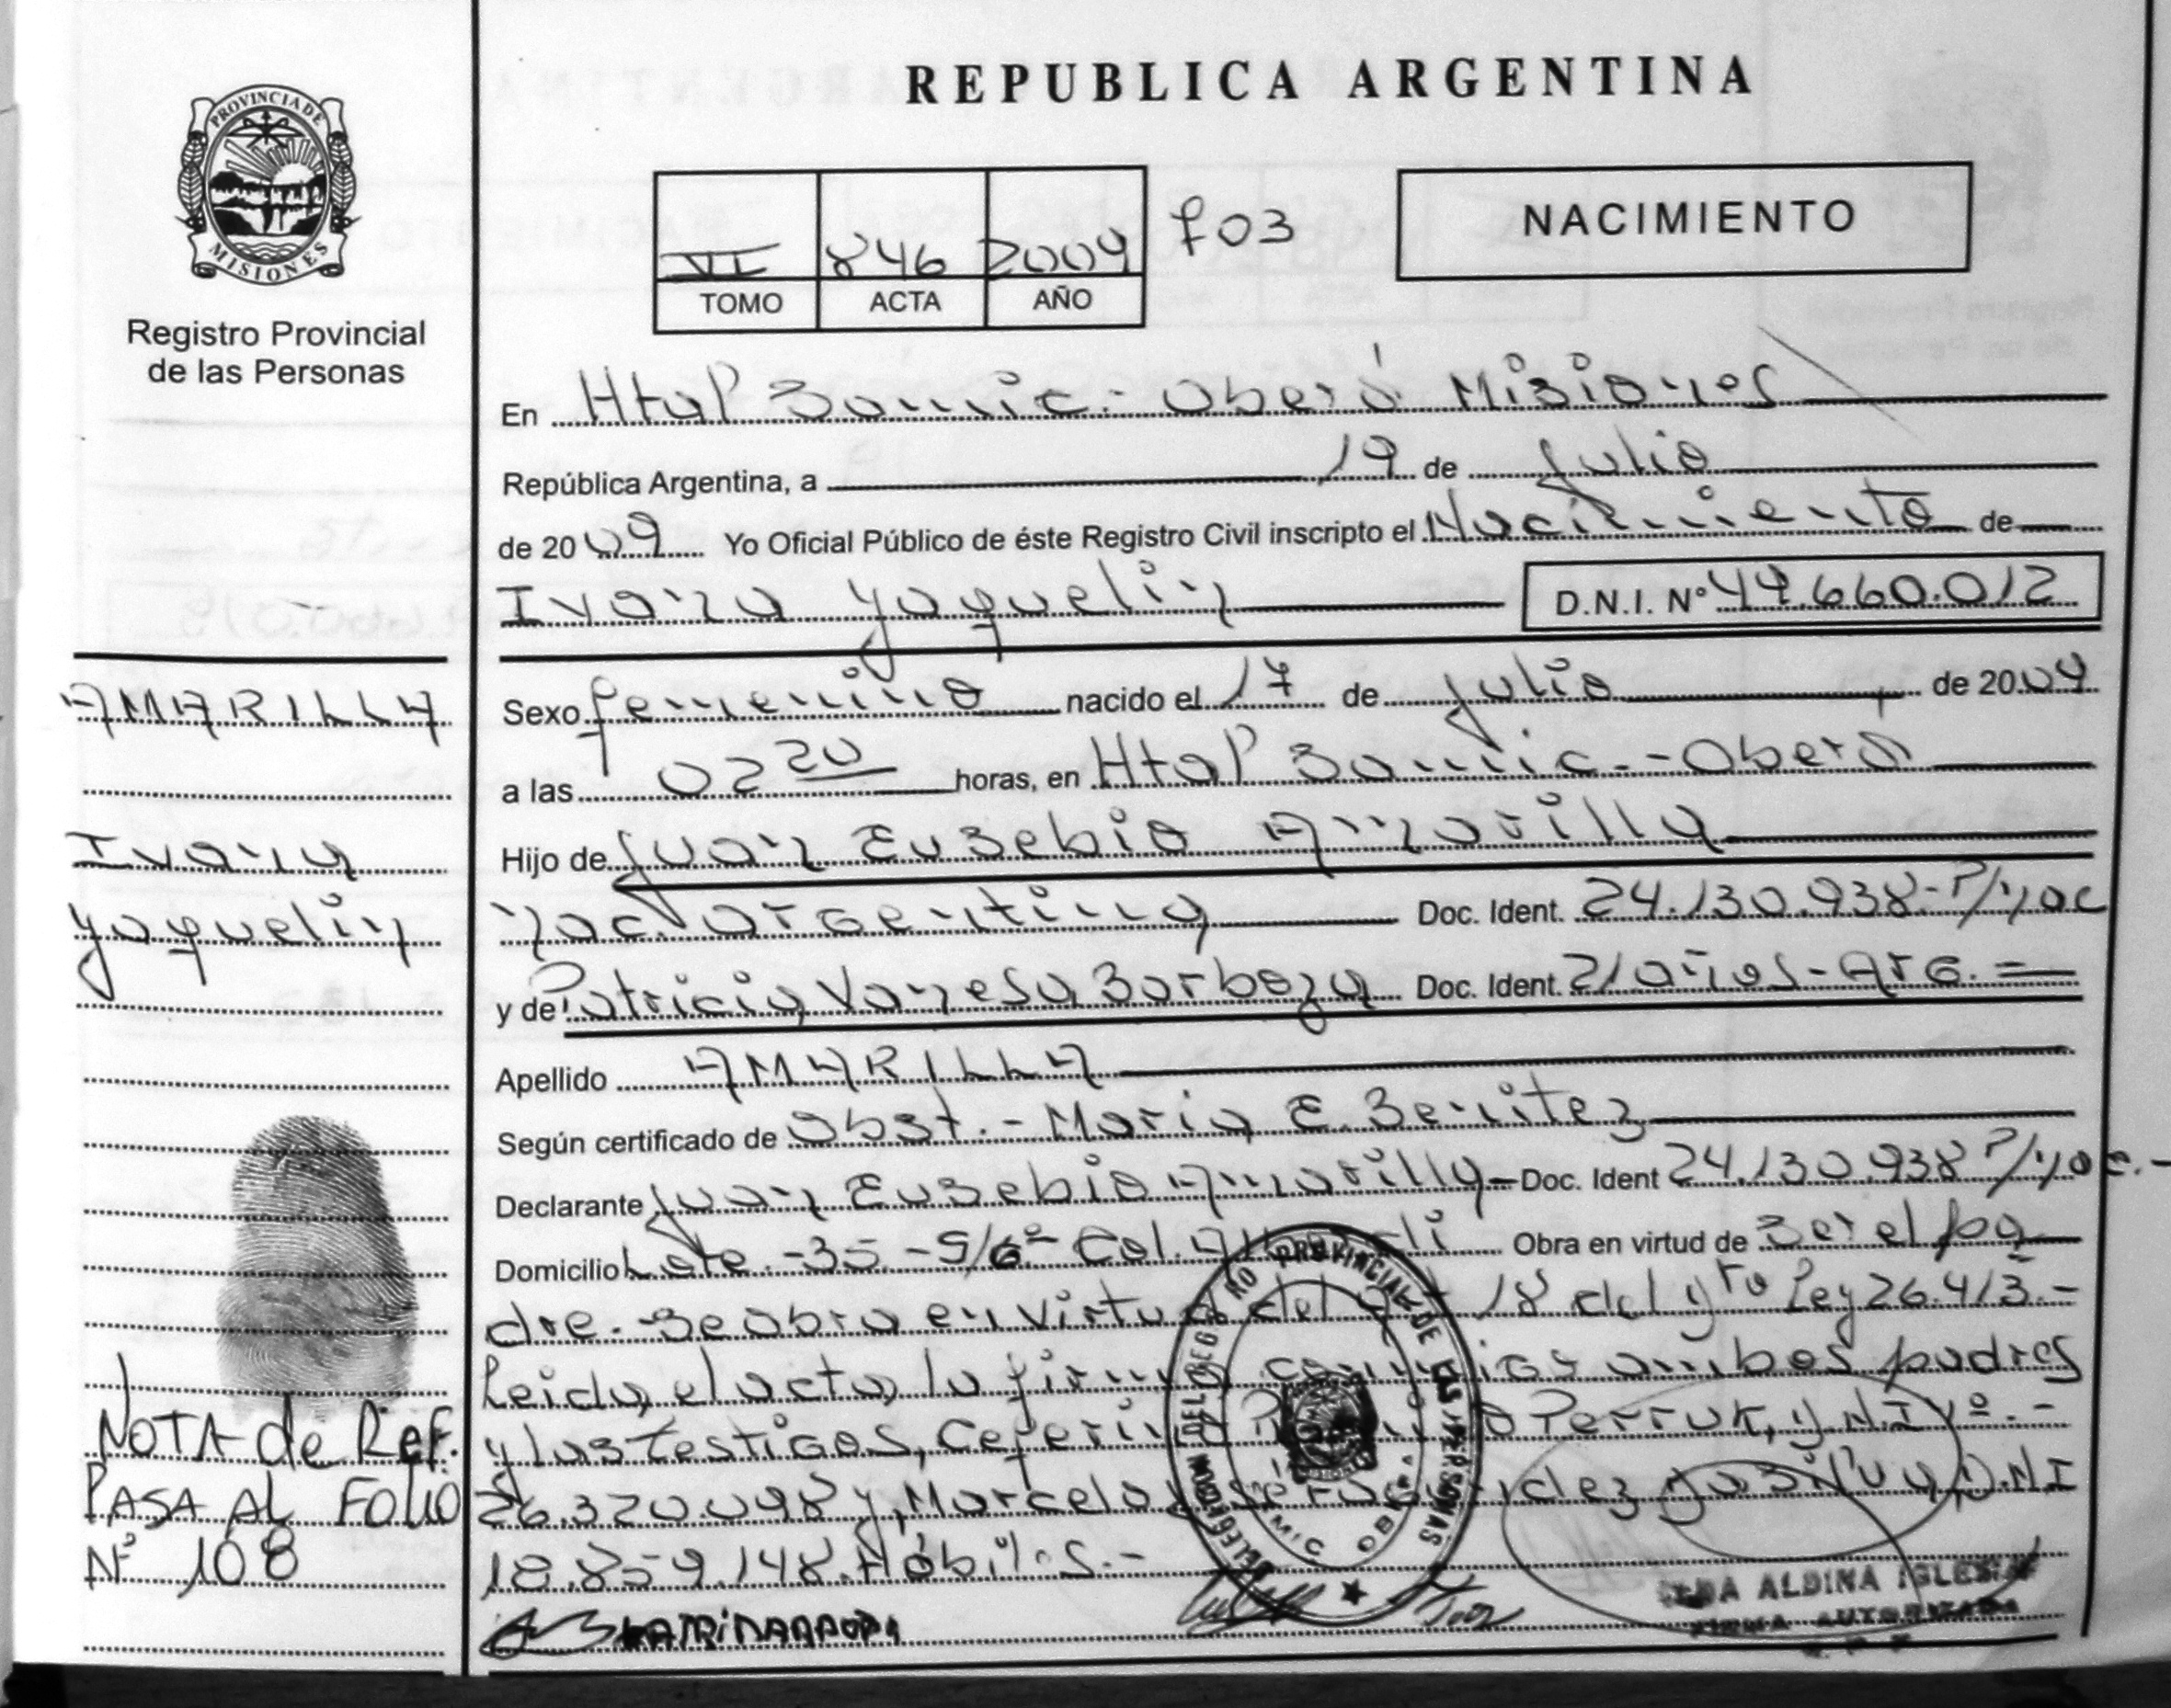 PROVINCIA DE
MISIONES
Registro Provincial
de las Personas
REPUBLICA ARGENTINA
VI 846 2009 F03
TOMO ACTA AÑO
NACIMIENTO
En Htal Samic.- Oberá Misiones
República Argentina, a 19 de Julio
de 2009 Yo Oficial Público de éste Registro Civil inscripto el Nacimiento de
Ivana Yaquelin D.N.I. Nº 49.660.012
AMARILLA
Ivana
Yaquelin
Sexo femenino nacido el 17 de Julio de 2009
a las 02 20 horas, en Htal Samic.- Oberá
Hijo de Juan Eusebio Amarilla
nac. argentina Doc. Ident. 24.130.938-P/nac
y de Patricia Vanesa Barboza Doc. Ident. 21 años - Arg. =
Apellido AMARILLA
Según certificado de Obst.- Maria E. Benitez
Declarante Juan Eusebio Amarilla Doc. Ident 24.130.938 P/nac.-
Domicilio Lote -35-S/6ª Col. Obra en virtud de Ser el pa
dre. Se obra en virtud del 18 del Ley 26.413.-
Leida el acta, la firman ambos padres
y los testigos, Perruk, D.N.I Nº.-
26.320.098 y, Marcelo D.N.I
18.859.148. Hábiles.-
NOTA de Ref.
PASA AL FOLIO
Nº 108
DELEGACION DEL REGISTRO PROVINCIAL DE LAS PERSONAS
ALDINA IGLESIA
FIRMA AUTORIZADA